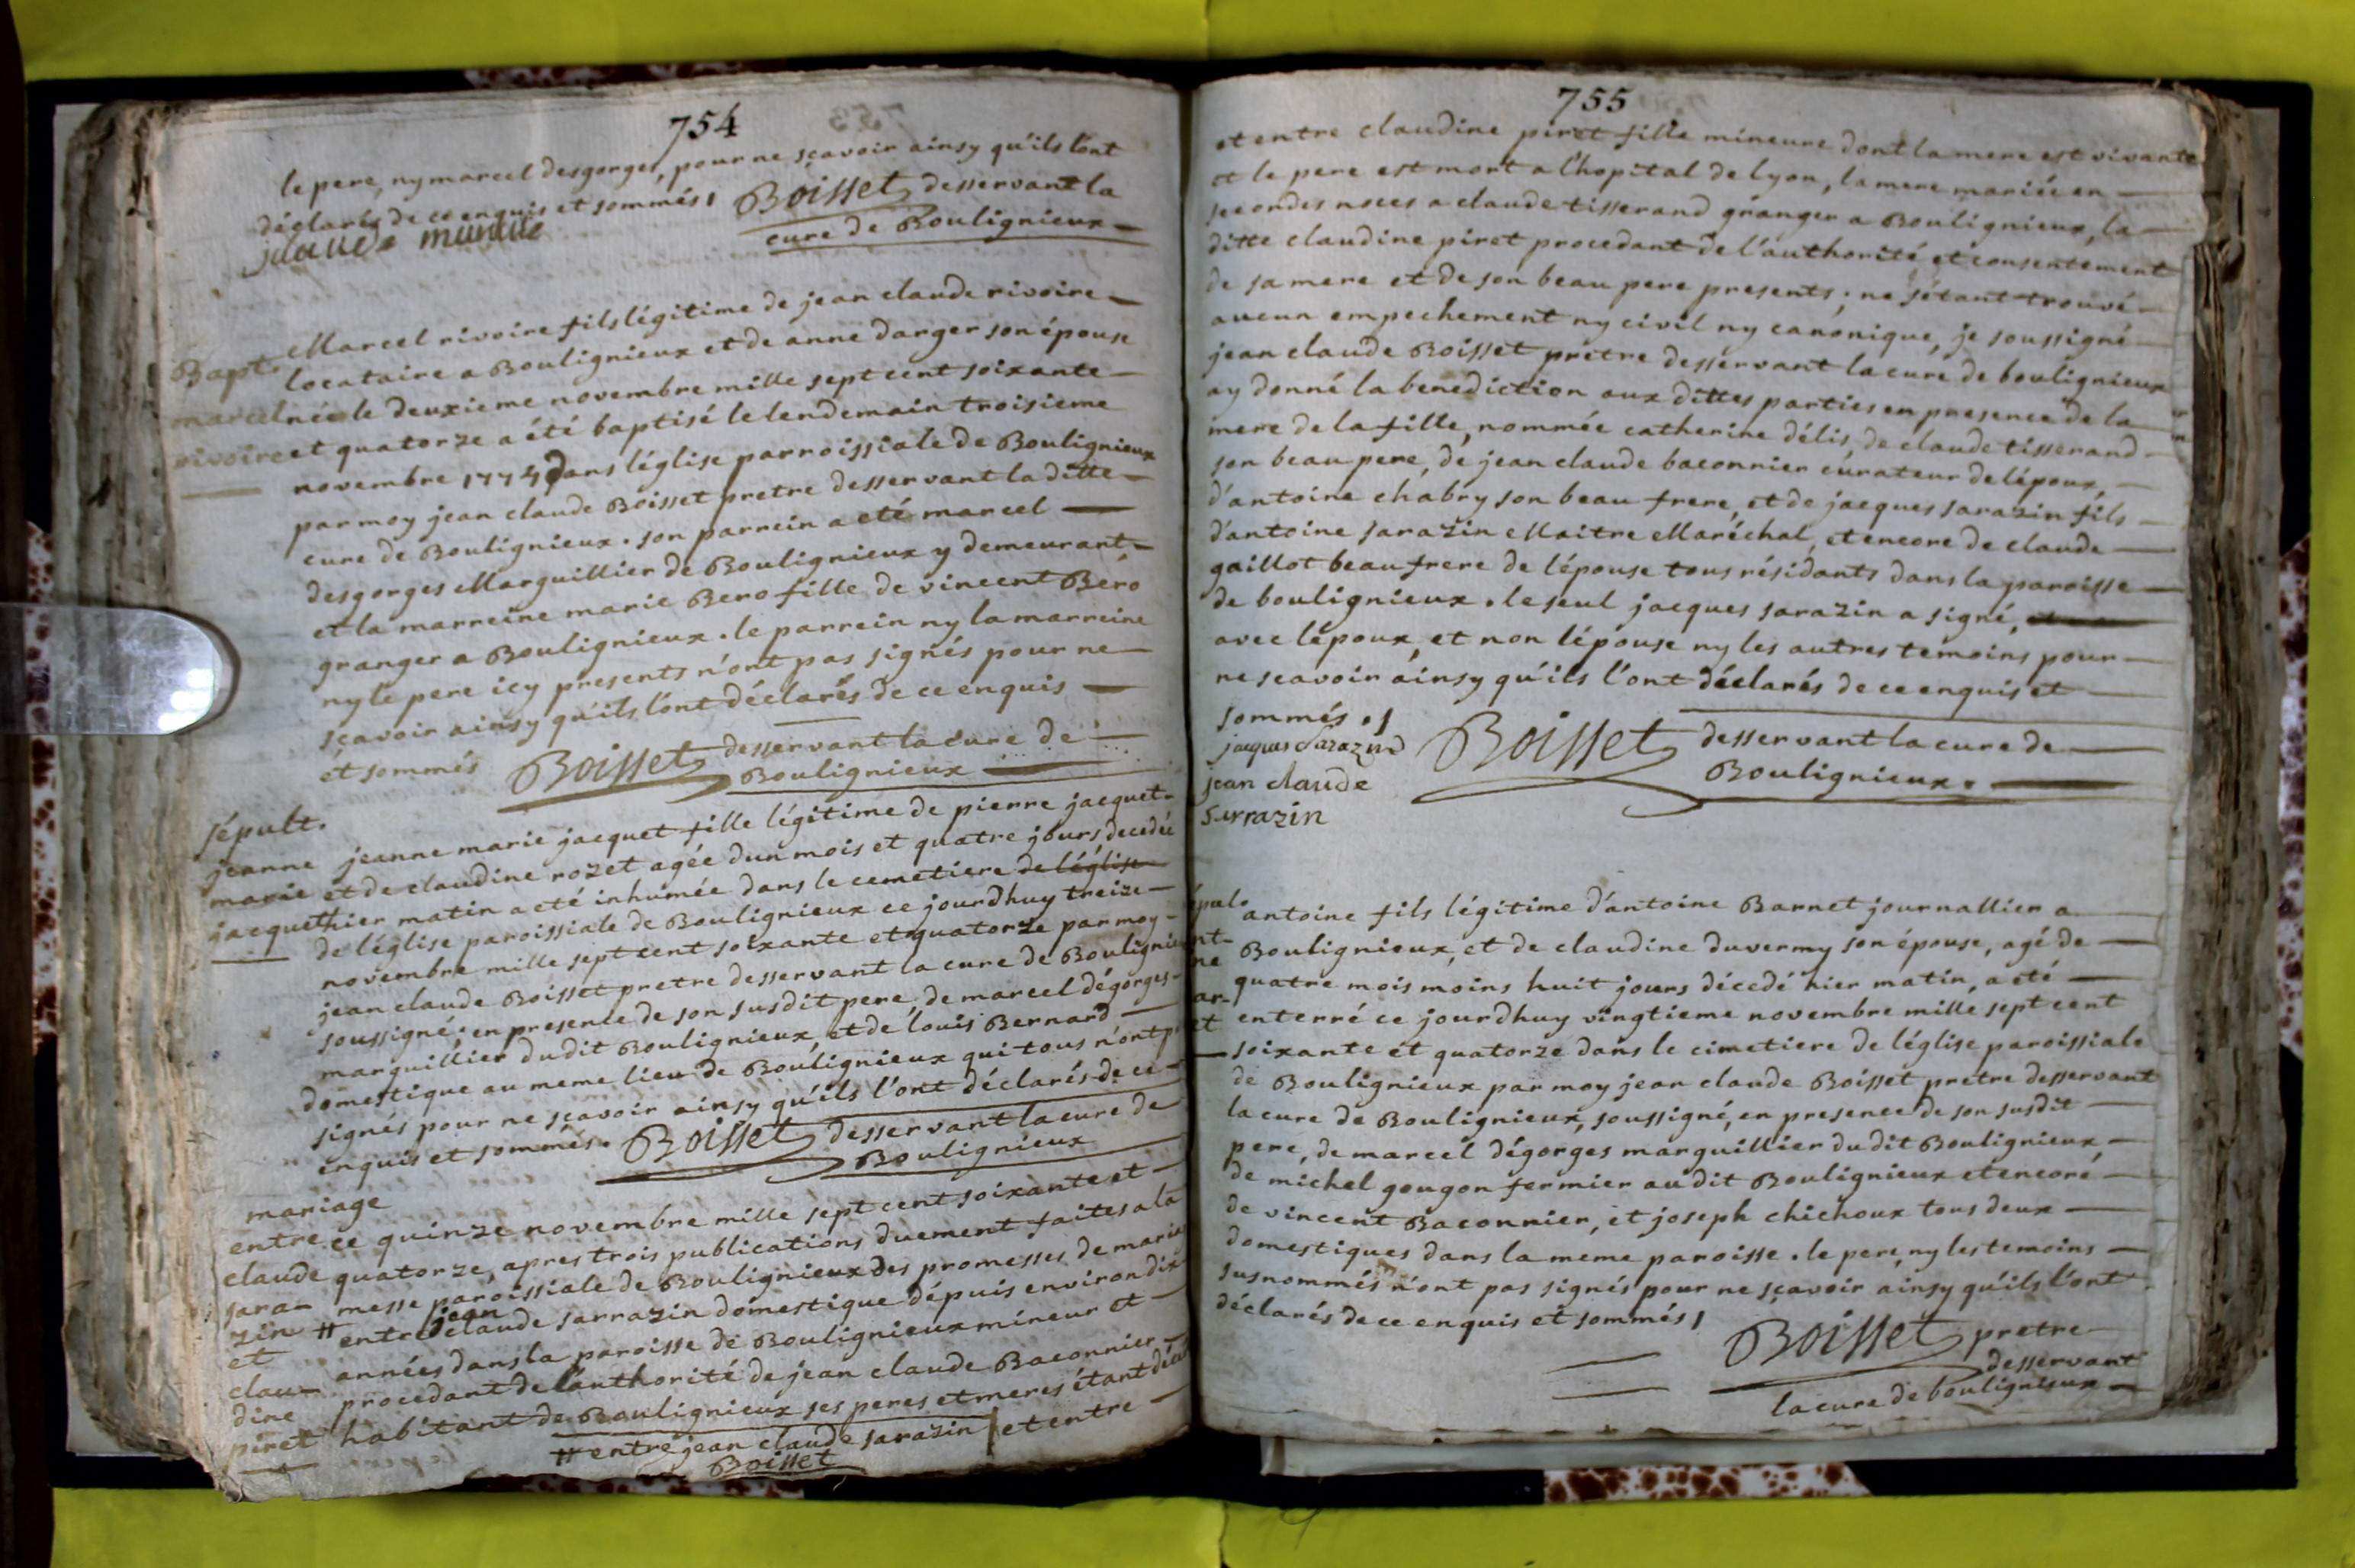 754
le pere, ny marcel desgorges, pour ne sçavoir ainsy qu'ils l'ont
déclarés de ce enquis et sommés, Boisset desservant la
cure de Boulignieux
Bapt. Marcel rivoire fils légitime de jean claude rivoire
locataire a Boulignieux et de anne darger son épouse
marcel née le deuxieme novembre mille sept cent soixante
rivoire et quatorze a été baptisé le lendemain troisieme
novembre 1774 dans léglise parroissiale de Boulignieux
par moy jean claude Boisset pretre desservant la ditte
cure de Boulignieux. son parrein a eté marcel
desgorges Marguillier de Boulignieux y demeurant,
et la marreine marie Bero fille de vincent Bero
granger a Boulignieux. le parrein ny la marreine
ny le pere icy presents n'ont pas signés pour ne
sçavoir ainsy qu'ils l'ont déclarés de ce enquis
et sommés Boisset desservant la cure de
Boulignieux
sépult.
jeanne jeanne marie jacquet fille légitime de pierre jacquet
marie et de claudine rozet agée dun mois et quatre jours, decedée
jacquet hier matin a eté inhumée dans le cemetiere de léglise
de léglise paroissiale de Boulignieux ce jourdhuy treize
novembre mille sept cent soixante et quatorze par moy
jean claude Boisset pretre desservant la cure de Boulignieux
soussigné; en presence de son susdit pere, de marcel dégorges
marguillier dudit Boulignieux, et de louis Bernard
domestique au meme lieu de Boulignieux qui tous n'ont p
signés pour ne sçavoir ainsy qu'ils l'ont déclarés de ce
enquis et sommés. Boisset desservant la cure de
Boulignieux
mariage
entre ce quinze novembre mille sept cent soixante et
claude quatorze, apres trois publications duement faites a la
sara- messe paroissiale de Boulignieux des promesses de maria
zin # entre jean claude sarrazin domestique dépuis environ dix
et années dans la paroisse de Boulignieux mineur et
clau- procedant de l'authorité de jean claude Baconnier
dine habitant de Boulignieux ses peres et meres étant déce
piret # entre jean claude sarazin et entre
Boisset
755
et entre claudine piret fille mineure dont la mere est vivante
et le pere est mort a l'hopital de lyon, la mere mariée en
secondes noces a claude tisserand granger a Boulignieux, la
ditte claudine piret procedant de l'authorité et consentement
de sa mere et de son beau pere presents; ne sétant trouvé
aucun empechement ny civil ny canonique, je soussigné
jean claude Boisset pretre desservant la cure de boulignieux
ay donné la benediction aux dittes parties en presence de la
mere de la fille, nommée catherine délis, de claude tisserand
son beau pere, de jean claude baconnier curateur de lépoux,
d'antoine chabry son beau frere, et de jacques sarazin fils
d'antoine sarazin Maitre Maréchal, et encore de claude
gaillot beau frere de lépouse tous résidants dans la paroisse
de boulignieux. le seul jacques sarazin a signé,
avec lépoux, et non lépouse ny les autres temoins pour
ne scavoir ainsy qu'ils l'ont déclarés de ce enquis et
sommés.
jacques Sarazind Boisset desservant la cure de
jean claude Boulignieux.
Sarrazin
épul. antoine fils légitime d'antoine Barnet journallier a
nt- Boulignieux, et de claudine duvermy son épouse, agé de
ne quatre mois moins huit jours décedé hier matin, a eté
ar- enterré ce jourdhuy vingtieme novembre mille sept cent
et soixante et quatorze dans le cimetiere de léglise paroissiale
de Boulignieux par moy jean claude Boisset pretre desservant
la cure de Boulignieux, soussigné, en presence de son susdit
pere, de marcel dégorges marguillier dudit Boulignieux,
de michel gougon fermier audit Boulignieux et encore
de vincent Baconnier, et joseph chichoux tous deux
domestiques dans la meme paroisse. le pere, ny les temoins
susnommés n'ont pas signés pour ne sçavoir ainsy qu'ils l'ont
déclarés de ce enquis et sommés,
Boisset pretre
desservant
la cure de boulignieux